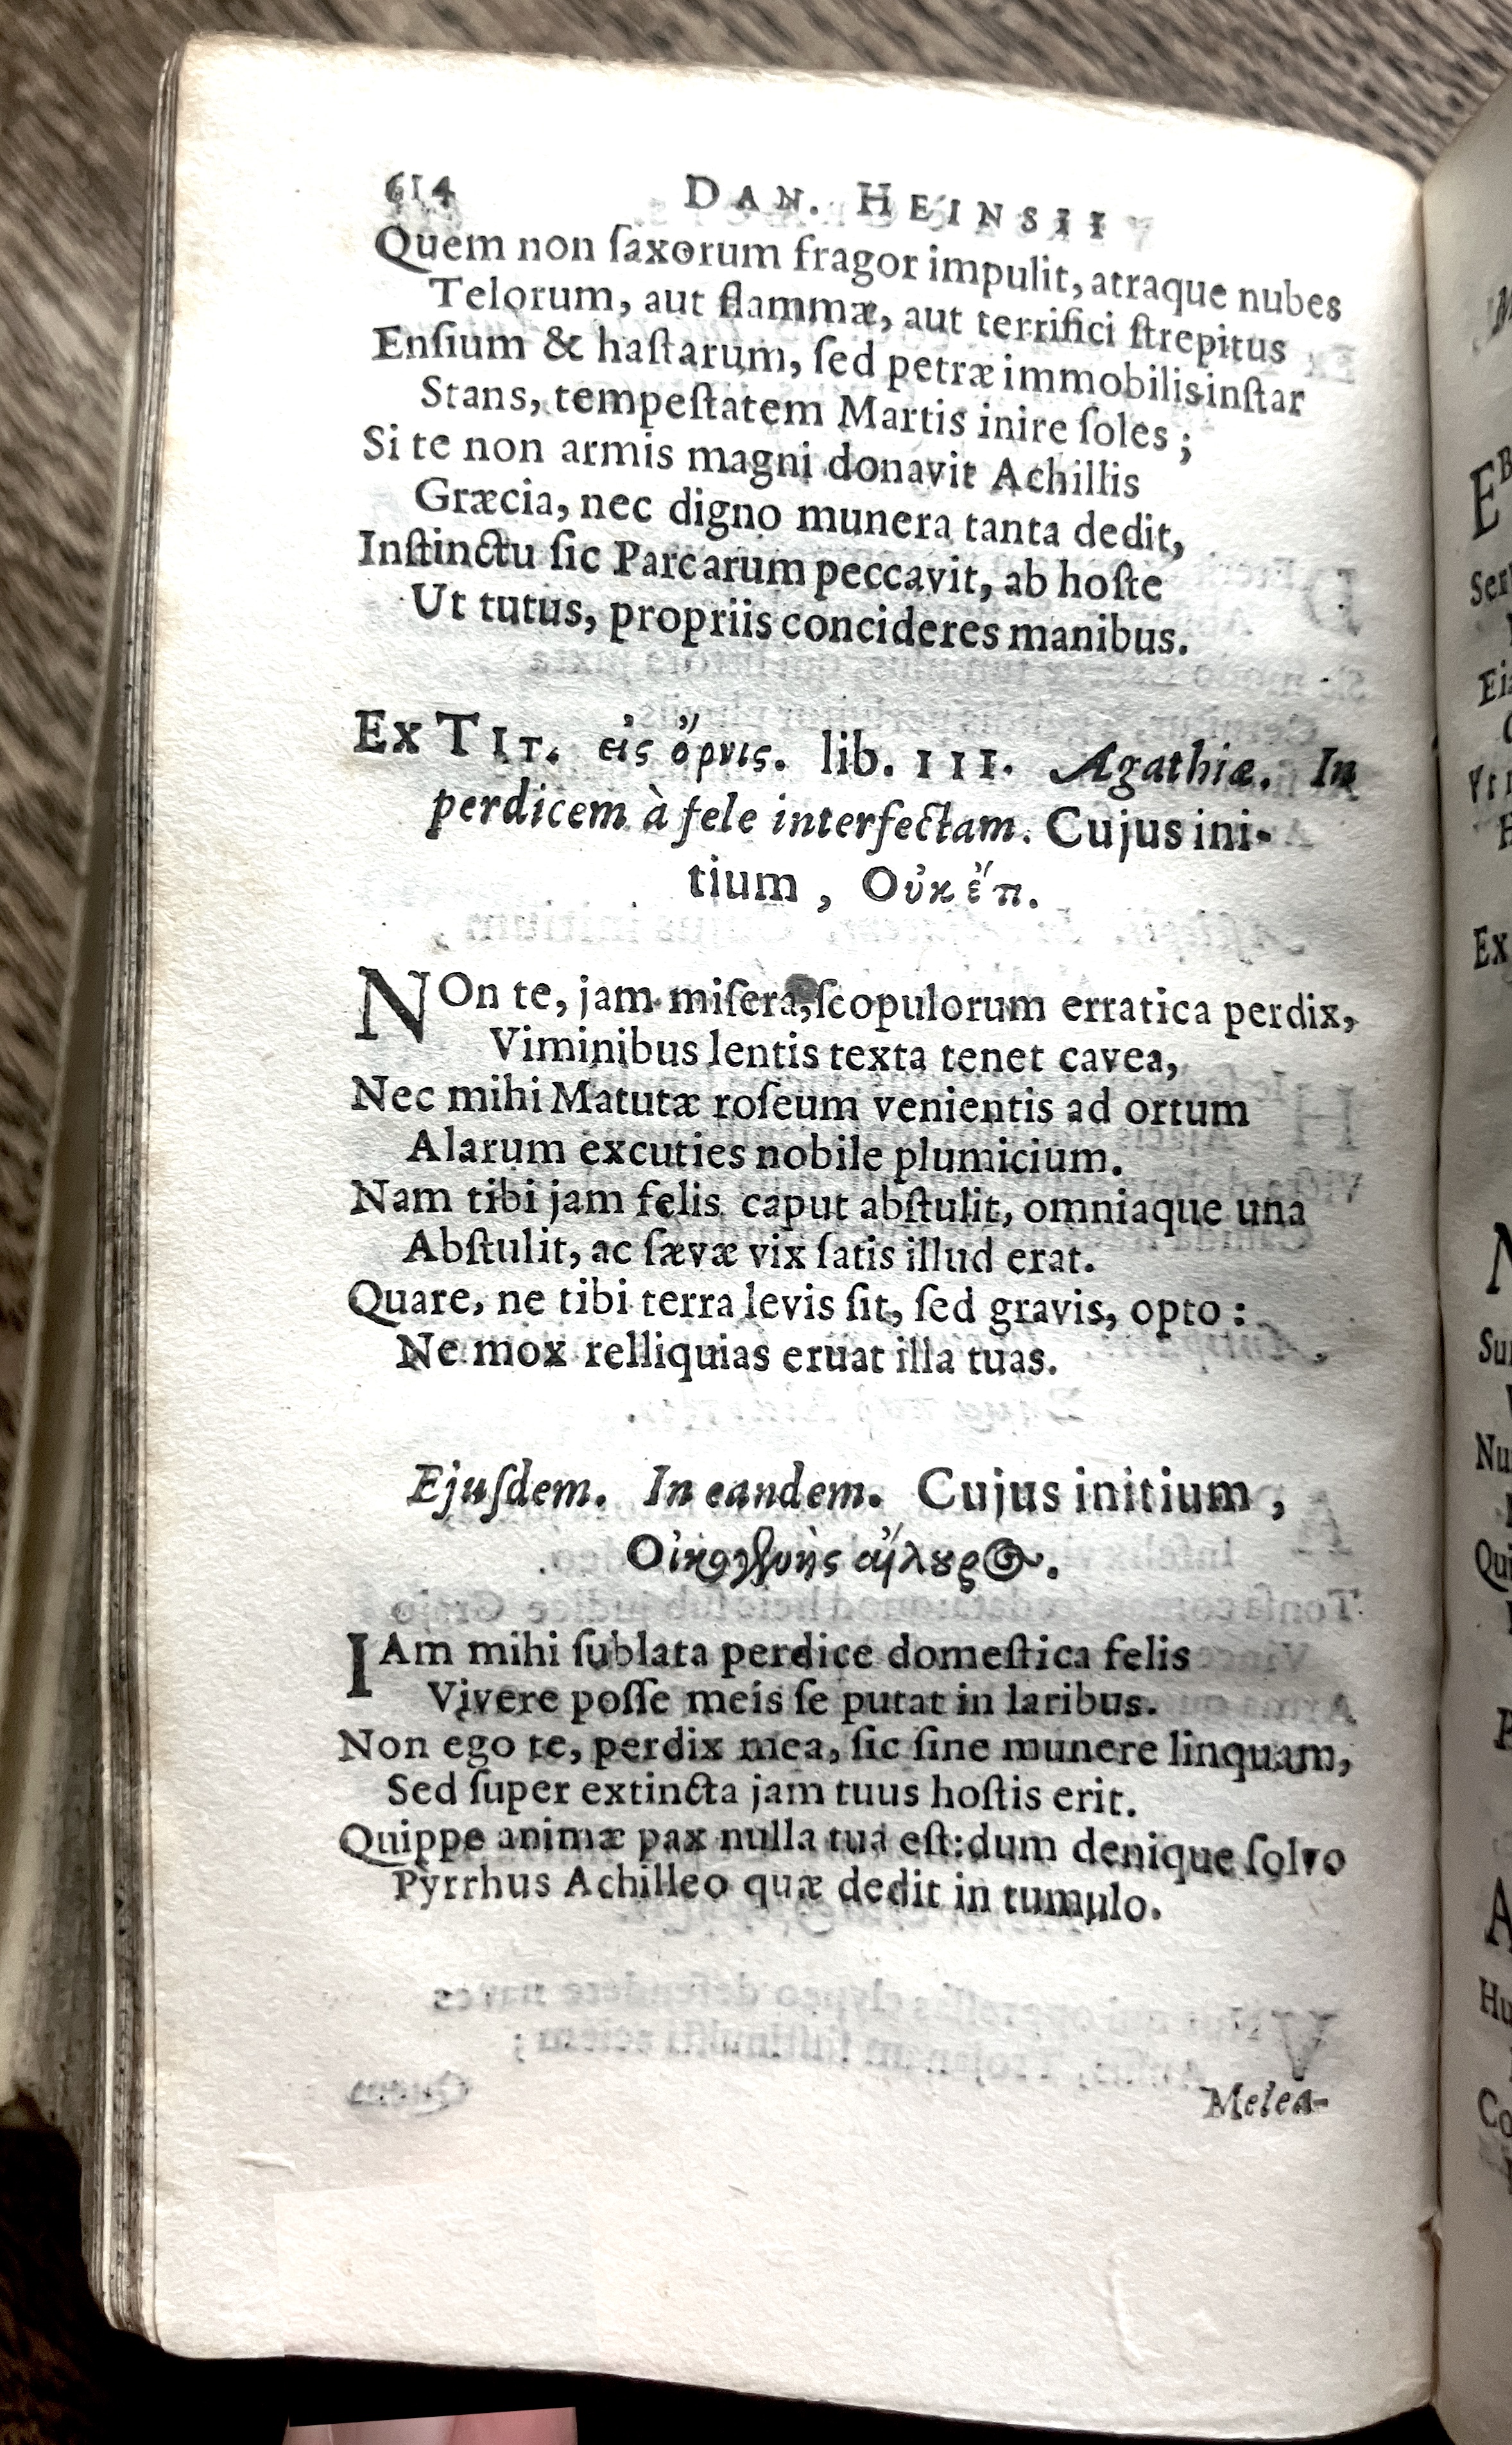 614 DAN. HEINSII
Quem non ſaxorum fragor impulit, atraque nubes
Telorum, aut flammæ, aut terrifici ſtrepitus
Enſium & haſtarum, ſed petræ immobilis inſtar
Stans, tempeſtatem Martis inire ſoles;
Si te non armis magni donavit Achillis
Græcia, nec digno munera tanta dedit,
Inſtinctu ſic Parcarum peccavit, ab hoſte
Ut tutus, propriis concideres manibus.
EX TIT. εἰς ὄρνις. lib. III. Agathiæ. In
perdicem à fele interfectam. Cujus ini-
tium, Οὐκ ἔτι.
NOn te, jam miſera, ſcopulorum erratica perdix,
Viminibus lentis texta tenet cavea,
Nec mihi Matutæ roſeum venientis ad ortum
Alarum excuties nobile plumicium.
Nam tibi jam felis caput abſtulit, omniaque una
Abſtulit, ac ſævæ vix ſatis illud erat.
Quare, ne tibi terra levis ſit, ſed gravis, opto:
Ne mox relliquias eruat illa tuas.
Ejuſdem. In eandem. Cujus initium,
Οἰκογενὴς αἴλουρος.
IAm mihi ſublata perdice domeſtica felis
Vivere poſſe meis ſe putat in laribus.
Non ego te, perdix mea, ſic ſine munere linquam,
Sed ſuper extincta jam tuus hoſtis erit.
Quippe animæ pax nulla tua eſt: dum denique ſolvo
Pyrrhus Achilleo quæ dedit in tumulo.
Melea-